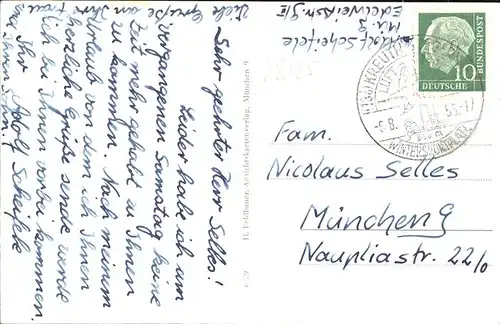 Viele Grüße an Ihre Frau
u. Ihren Sohn!
Sehr geehrter Herr Selles!
Leider habe ich am
vergangenen Samstag keine
Zeit mehr gehabt zu Ihnen
zu kommen. Nach meinem
Urlaub von dem ich Ihnen
herzliche Grüße sende werde
ich bei Ihnen vorbei kommen.
Ihr Adolf Scheifele
H. Feldbauer, Ansichtskartenverlag, München 9
Adolf Scheifele
Mü. 9
Edelweißstr.
DEUTSCHE
BUNDESPOST
10
KREUTH
WINTERSPORTPLATZ
Fam.
Nicolaus Selles
München 9
Naupliastr. 22/0